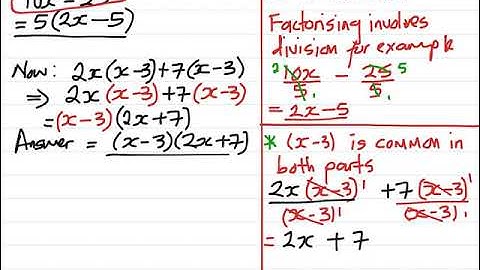 10x - 25
= 5(2x-5)
Now: 2x(x-3)+7(x-3)
⇒ 2x(x-3)+7(x-3)
=(x-3)(2x+7)
Answer = (x-3)(2x+7)
Factorising involves
division for example
2 10x/5 1 - 25 5/5 1
= 2x-5
* (x-3) is common in
both parts
2x(x-3) 1/(x-3) 1 + 7(x-3) 1/(x-3) 1
= 2x + 7